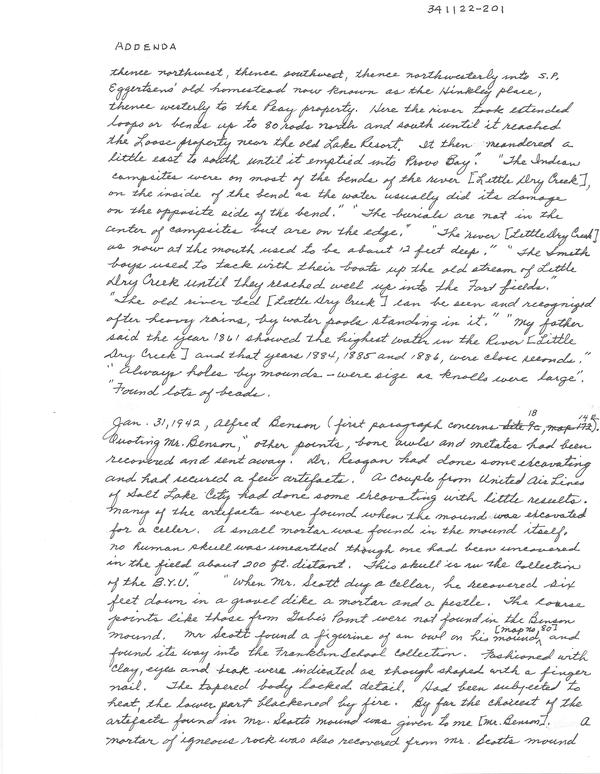 341122-201
ADDENDA
thence northwest, thence southwest, thence northwesterly into S.P.
Eggertsens' old homestead now known as the Hinkley place,
thence westerly to the Peay property. Here the river took extended
loops or bends up to 80 rods north and south until it reached
the Loose property near the old Lake Resort. It then meandered a
little east to south until it emptied into Provo Bay." "The Indian
campsites were on most of the bends of the river [Little Dry Creek],
on the inside of the bend as the water usually did its damage
on the opposite side of the bend." "The burials are not in the
center of campsites but are on the edge." "The river [Little Dry Creek]
as now at the mouth used to be about 12 feet deep." "The Smith
boys used to tack with their boats up the old stream of Little
Dry Creek until they reached well up into the Fort fields."
"The old river bed [Little Dry Creek] can be seen and recognized
after heavy rains, by water pools standing in it." "My father
said the year 1861 showed the highest water in the River [Little
Dry Creek] and that years 1884, 1885 and 1886, were close seconds."
"Always holes by mounds - were size as knolls were large".
"Found lots of beads.
18 14R
Jan. 31, 1942, Alfred Benson (first paragraph concerns Site 9c, map 172).
Quoting Mr. Benson, "other points, bone awls and metates had been
recovered and sent away. Dr. Reagan had done some excavating
and had secured a few artifacts. A couple from United Air Lines
of Salt Lake City had done some excavating with little results.
Many of the artifacts were found when the mound was excavated
for a celler. A small mortar was found in the mound itself.
no human skull was unearthed though one had been uncovered
in the field about 200 ft. distant. This skull is in the Collection
of the B.Y.U." "When Mr. Scott dug a cellar, he recovered six
feet down in a gravel dike a mortar and a pestle. The coarse
points like those from Gabis Point were not found in the Benson
mound. Mr Scott found a figurine of an owl on his mound, [map no. 80] and
found its way into the Franklin School collection. Fashioned with
clay, eyes and beak were indicated as though shaped with a finger
nail. The tapered body locked detail. Had been subjected to
heat, the lower part blackened by fire. By far the choicest of the
artifacts found in Mr. Scotts mound was given to me [Mr. Benson]. A
mortar of igneous rock was also recovered from Mr. Scotts mound